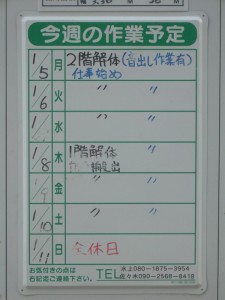 今週の作業予定
1/5 月 2階解体(音出し作業有)
仕事始め
1/6 火 〃 〃
1/ 水 〃 〃
1/8 木 1階解体
搬出
1/9 金 〃 〃
1/10 土 〃 〃
1/11 日 全休日
お気付きの点は
右記迄ご連絡下さい。
TEL
水上080-1875-3954
佐々木090-2569-8418